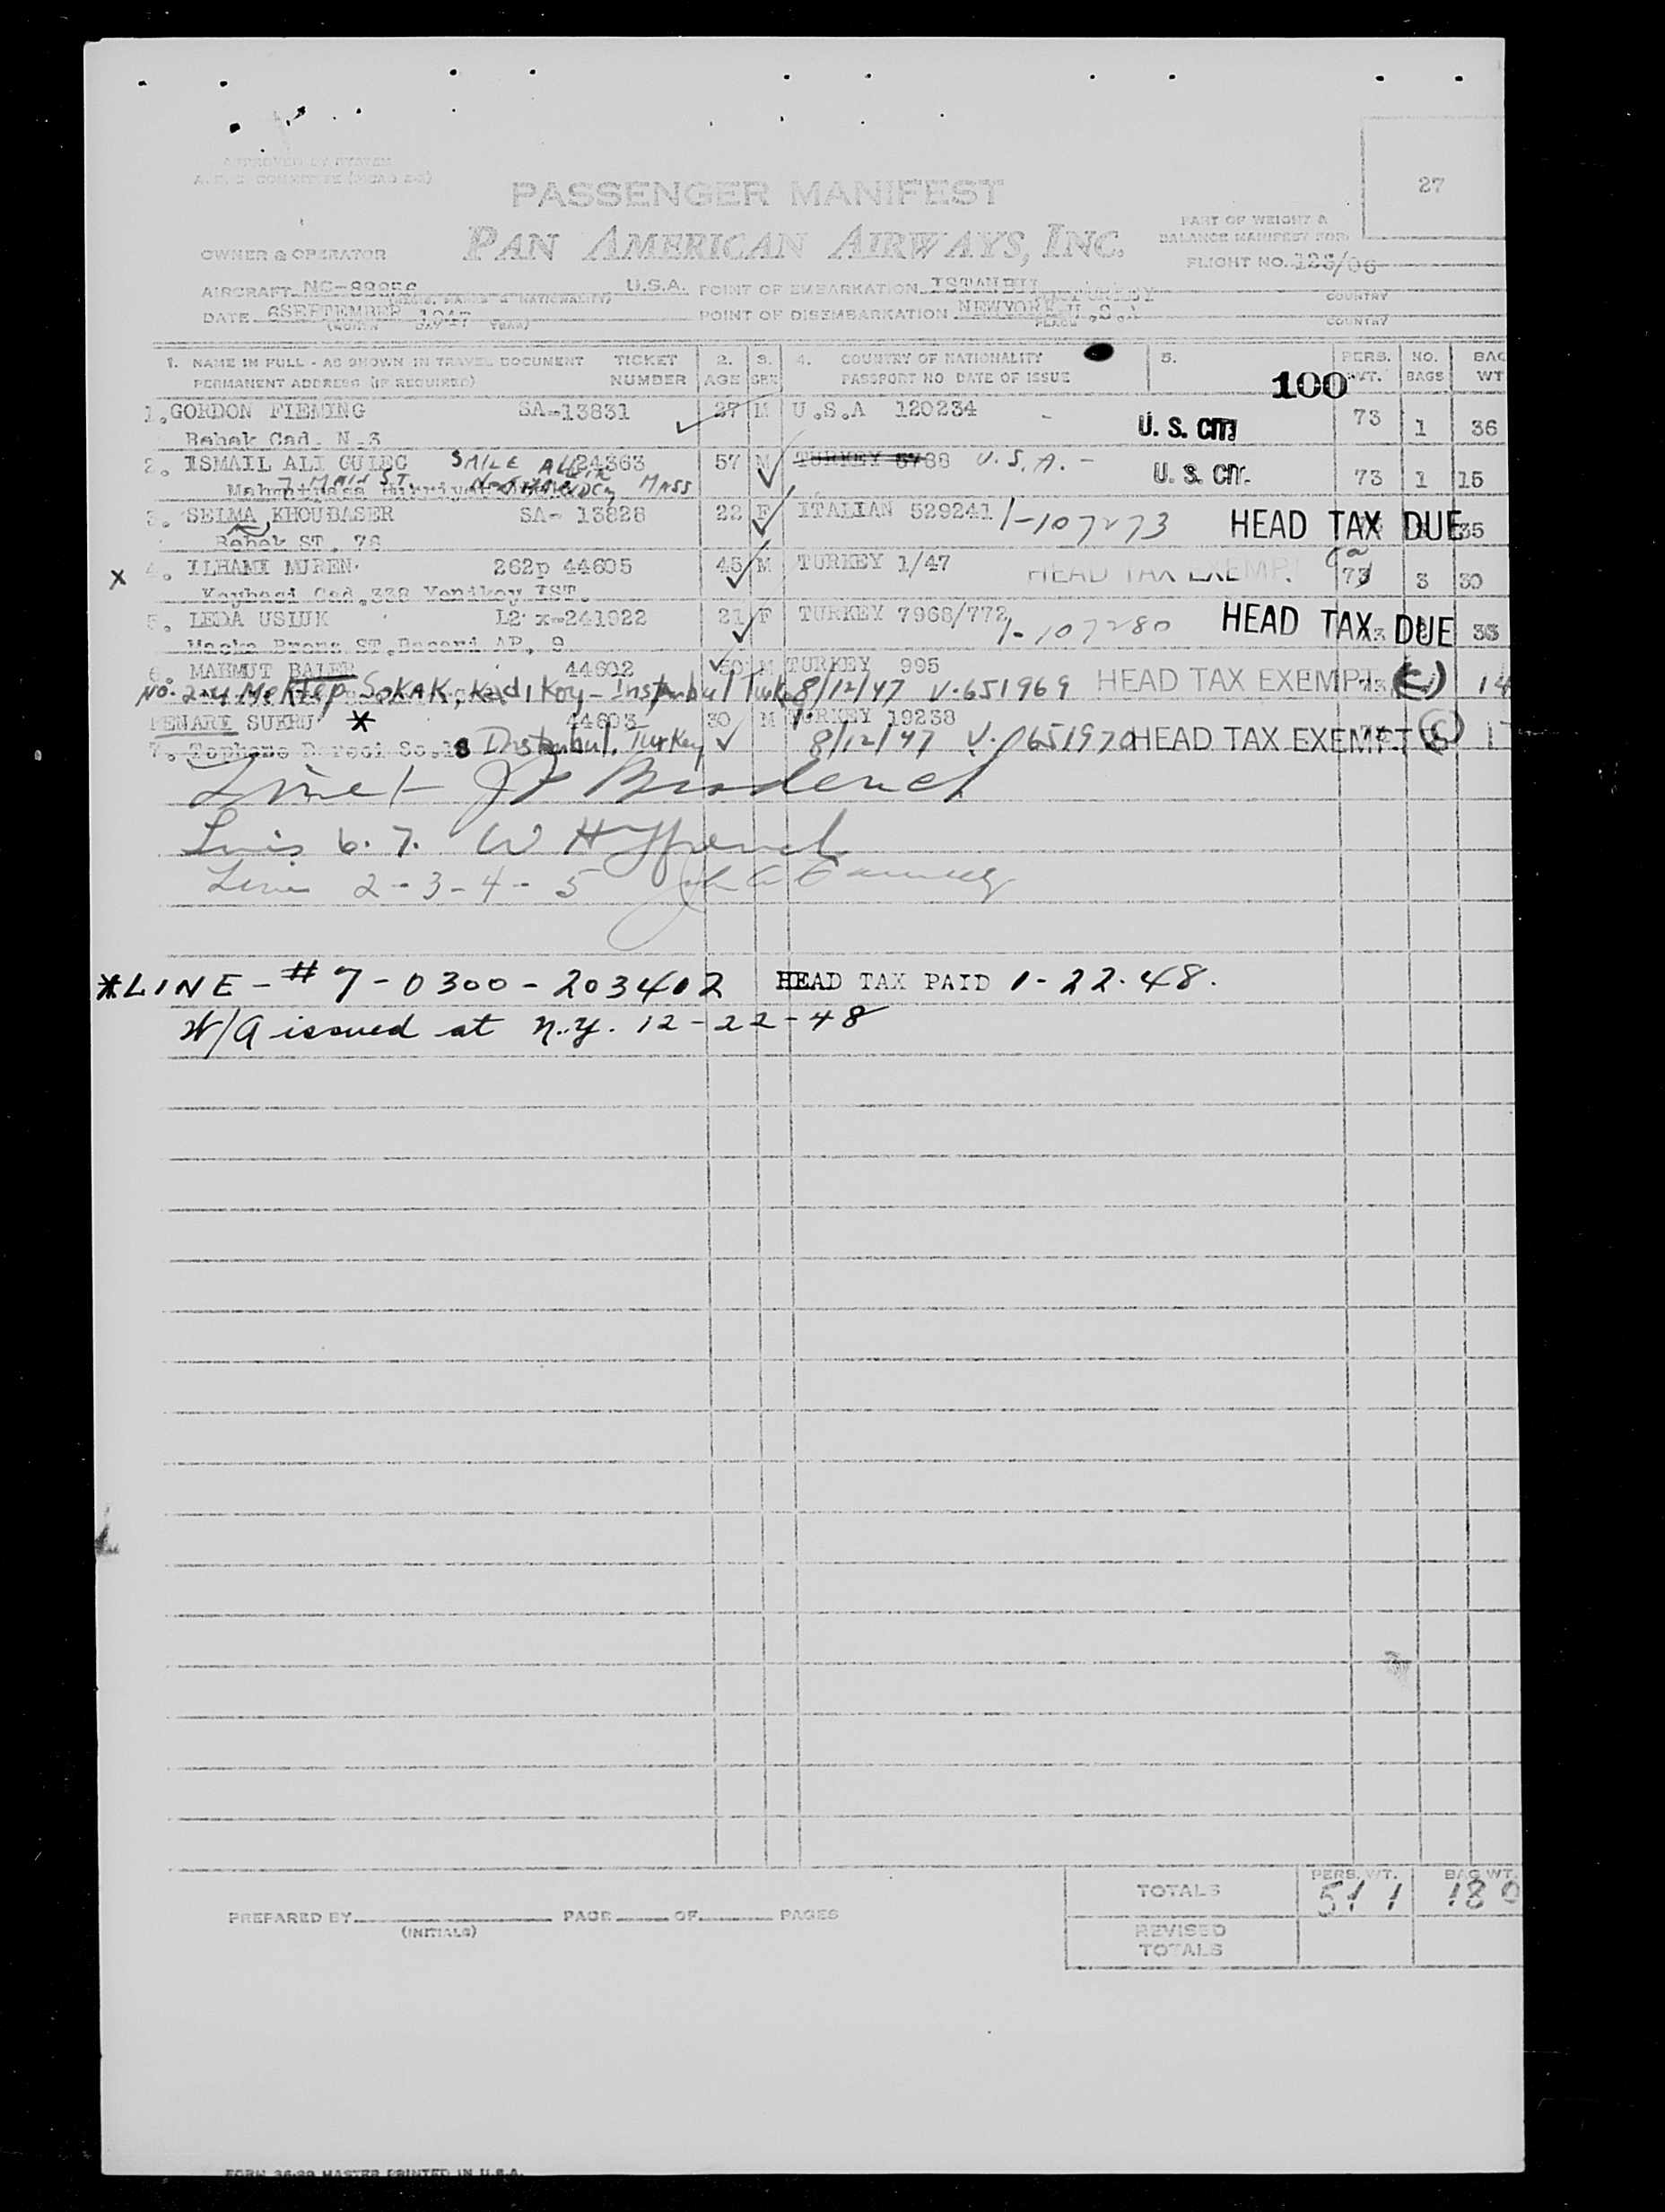 27
PASSENGER MANIFEST
PAN AMERICAN AIRWAYS, INC.
PART OF WEIGHT &
BALANCE MANIFEST FOR
OWNER & OPERATOR
FLIGHT NO.
AIRCRAFT U.S.A. POINT OF EMBARKATION ISTANBUL TURKEY
COUNTRY
DATE 6SEPTEMBER 1947 POINT OF DISEMBARKATION NEWYORK U.S.A
(MONTH DAY YEAR) PLACE COUNTRY
1. NAME IN FULL - AS SHOWN IN TRAVEL DOCUMENT TICKET 2. 3. 4. COUNTRY OF NATIONALITY 5. PERS. NO. BAG
PERMANENT ADDRESS (IF REQUIRED) NUMBER AGE SEX PASSPORT NO DATE OF ISSUE 100 WT. BAGS WT
1. GORDON SA-13831 27 M U.S.A 120234 - 73 1 36
Bebek Cad. N.3 U. S. CIT.
2. ISMAIL ALI GULEC 424363 57 M TURKEY U.S.A. - U. S. CIT. 73 1 15
7 MAIN ST. MASS
3. SELMA KHOUBASER SA- 13828 22 F ITALIAN 529241 1-107273 HEAD TAX DUE 35
Bebek ST. 78
X 4. ILHAMI MUREN 262p 44605 45 M TURKEY 1/47 HEAD TAX EXEMPT 73 3 30
Koybasi Cad.338 Yenikoy IST.
5. LEDA USLUK L2 x-241922 21 F TURKEY 7968/772 1-107280 HEAD TAX DUE
6. MAHMUT BALER 44602 50 M TURKEY 995
No. 2-4 Mektep Sokak, Kadikoy - Instanbul Turkey 8/12/47 V-651969 HEAD TAX EXEMPT 14
FENARI SUKRU * 44603 30 M TURKEY 19238
7. Tophane Instanbul, Turkey 8/12/47 V. 0651970 HEAD TAX EXEMPT
Line 1
Lines 6. 7. W H French
Line 2-3-4-5
*LINE - #7 - 0300 - 203402 HEAD TAX PAID 1-22-48.
W/A issued at N.Y. 12-22-48
TOTALS PERS. WT. 511 BAG WT. 180
PREPARED BY PAGE OF PAGES
(INITIALS)
REVISED
TOTALS